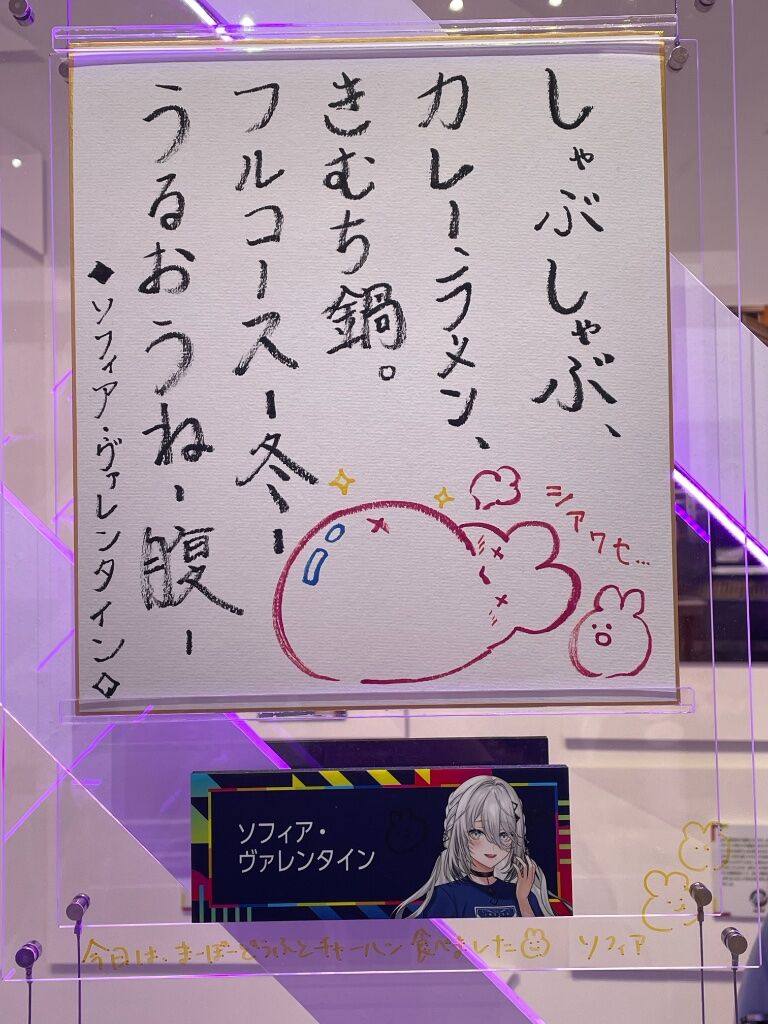 しゃぶしゃぶ、
カレーラメン、
きむち鍋。
フルコースー冬ー
うるおうねー腹ー
◆ソフィア・ヴァレンタイン◇
シアワセ…
ソフィア・
ヴァレンタイン
今日は、まーぼーどうふとチャーハン食べました ソフィア